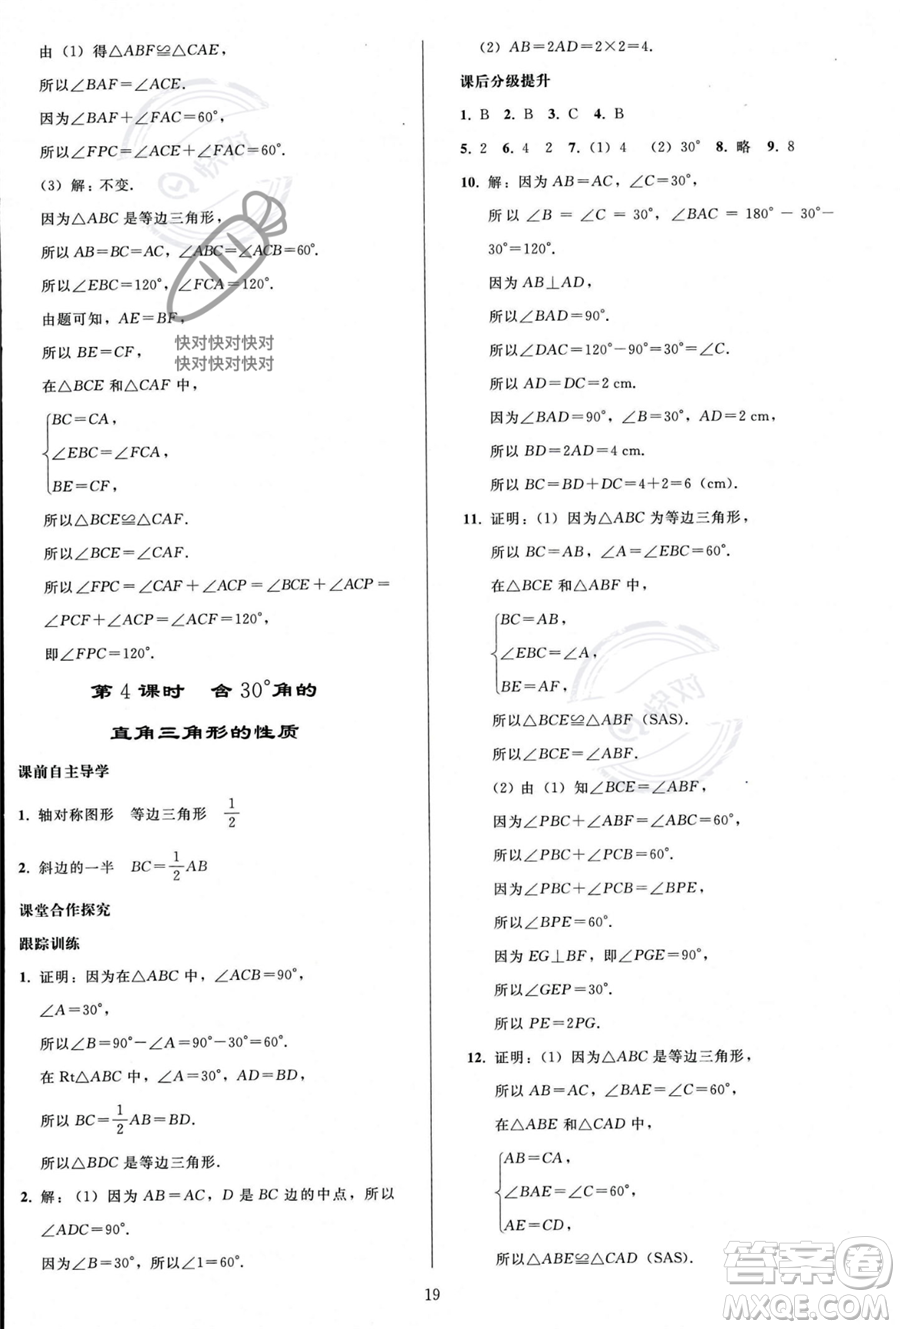 由（1）得△ABF≌△CAE，
所以∠BAF＝∠ACE．
因为∠BAF＋∠FAC＝60°，
所以∠FPC＝∠ACE＋∠FAC＝60°．
（3）解：不变．
因为△ABC 是等边三角形，
所以 AB＝BC＝AC，∠ABC＝∠ACB＝60°．
所以∠EBC＝120°，∠FCA＝120°．
由题可知，AE＝BF，
所以 BE＝CF，
在△BCE 和△CAF 中，
BC＝CA，
∠EBC＝∠FCA，
BE＝CF，
所以△BCE≌△CAF．
所以∠BCE＝∠CAF．
所以∠FPC＝∠CAF＋∠ACP＝∠BCE＋∠ACP＝
∠PCF＋∠ACP＝∠ACF＝120°，
即∠FPC＝120°．
第 4 课时　含 30°角的
直角三角形的性质
课前自主导学
1. 轴对称图形　等边三角形　1/2
2. 斜边的一半　BC＝1/2AB
课堂合作探究
跟踪训练
1. 证明：因为在△ABC 中，∠ACB＝90°，
∠A＝30°，
所以∠B＝90°－∠A＝90°－30°＝60°．
在 Rt△ABC 中，∠A＝30°，AD＝BD，
所以 BC＝1/2AB＝BD．
所以△BDC 是等边三角形．
2. 解：（1）因为 AB＝AC，D 是 BC 边的中点，所以
∠ADC＝90°．
因为∠B＝30°，所以∠1＝60°．
（2）AB＝2AD＝2×2＝4．
课后分级提升
1. B　2. B　3. C　4. B
5. 2　6. 4　2　7.（1）4　（2）30°　8. 略　9. 8
10. 解：因为 AB＝AC，∠C＝30°，
所以∠B ＝ ∠C ＝ 30°，∠BAC ＝ 180° － 30°－
30°＝120°．
因为 AB⊥AD，
所以∠BAD＝90°．
所以∠DAC＝120°－90°＝30°＝∠C．
所以 AD＝DC＝2 cm．
因为∠BAD＝90°，∠B＝30°，AD＝2 cm，
所以 BD＝2AD＝4 cm．
所以 BC＝BD＋DC＝4＋2＝6（cm）．
11. 证明：（1）因为△ABC 为等边三角形，
所以 BC＝AB，∠A＝∠EBC＝60°．
在△BCE 和△ABF 中，
BC＝AB，
∠EBC＝∠A，
BE＝AF，
所以△BCE≌△ABF（SAS）．
所以∠BCE＝∠ABF．
（2）由（1）知∠BCE＝∠ABF，
因为∠PBC＋∠ABF＝∠ABC＝60°，
所以∠PBC＋∠PCB＝60°．
因为∠PBC＋∠PCB＝∠BPE，
所以∠BPE＝60°．
因为 EG⊥BF，即∠PGE＝90°，
所以∠GEP＝30°．
所以 PE＝2PG．
12. 证明：（1）因为△ABC 是等边三角形，
所以 AB＝AC，∠BAE＝∠C＝60°，
在△ABE 和△CAD 中，
AB＝CA，
∠BAE＝∠C＝60°，
AE＝CD，
所以△ABE≌△CAD（SAS）．
19
快对快对快对
快对快对快对
快对
快对
答案圈
MXQE.COM